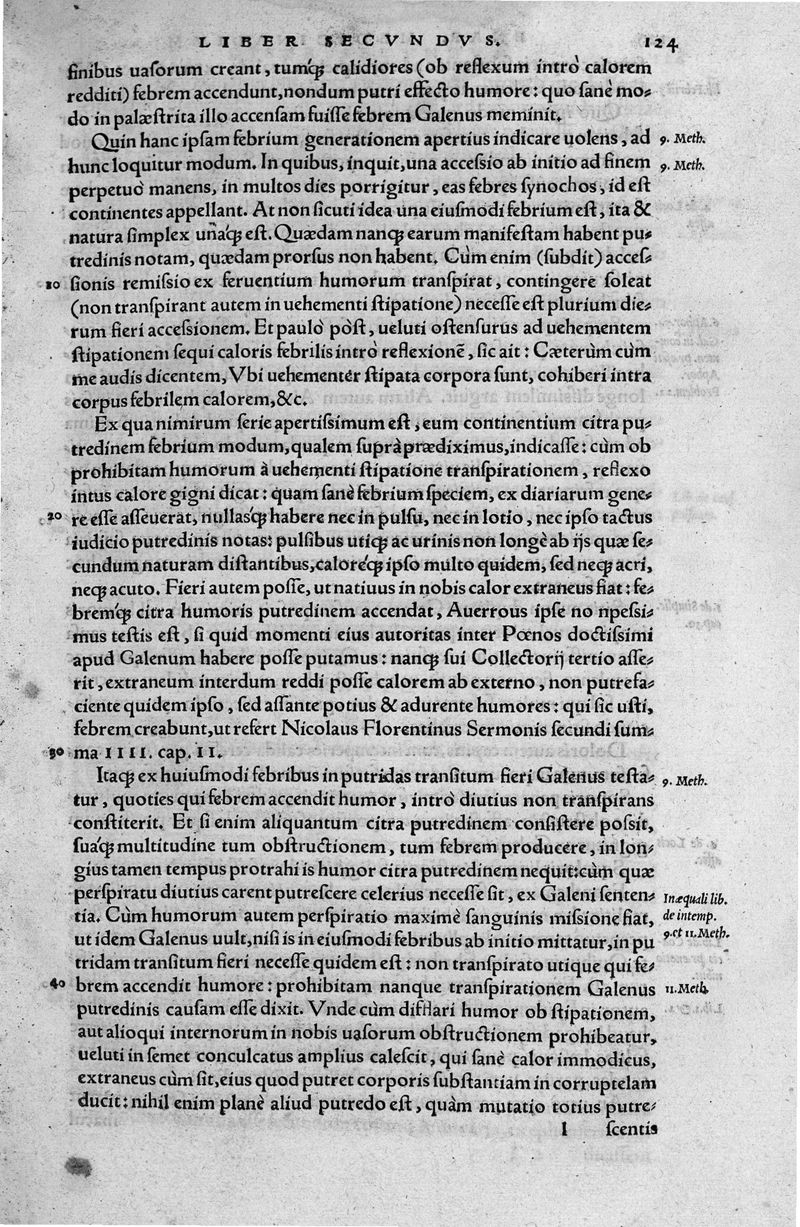 LIBER SECVNDVS. 124
finibus uaſorum creant, tumq́; calidiores (ob reflexum intrò calorem
redditi) febrem accendunt, nondum putri effecto humore: quo ſanè mo⸗
do in palæſtrita illo accenſam fuiſſe febrem Galenus meminit.
Quin hanc ipſam febrium generationem apertius indicare uolens, ad 9. Meth.
hunc loquitur modum. In quibus, inquit, una acceſsio ab initio ad finem 9. Meth.
perpetuò manens, in multos dies porrigitur, eas febres ſynochos, id eſt
continentes appellant. At non ſicuti idea una eiuſmodi febrium eſt, ita &
natura ſimplex unaq́; eſt. Quædam nanq; earum manifeſtam habent pu⸗
tredinis notam, quædam prorſus non habent. Cùm enim (ſubdit) acceſ⸗
10 ſionis remiſsio ex feruentium humorum tranſpirat, contingere ſoleat
(non tranſpirant autem in uehementi ſtipatione) neceſſe eſt plurium die⸗
rum fieri acceſsionem. Et paulò pòſt, ueluti oſtenſurus ad uehementem
ſtipationem ſequi caloris febrilis intrò reflexionē, ſic ait: Cæterùm cùm
me audis dicentem, Vbi uehementer ſtipata corpora ſunt, cohiberi intra
corpus febrilem calorem, &c.
Ex qua nimirum ſerie apertiſsimum eſt, eum continentium citra pu⸗
tredinem febrium modum, qualem ſuprà prædiximus, indicaſſe: cùm ob
prohibitam humorum à uehementi ſtipatione tranſpirationem, reflexo
intus calore gigni dicat: quam ſanè febrium ſpeciem, ex diariarum gene⸗
20 re eſſe aſſeuerat, nullasq́; habere nec in pulſu, nec in lotio, nec ipſo tactus
iudicio putredinis notas: pulſibus utiq; ac urinis non longè ab ijs quæ ſe⸗
cundum naturam diſtantibus, caloreq́; ipſo multo quidem, ſed neq; acri,
neq; acuto. Fieri autem poſſe, ut natiuus in nobis calor extraneus fiat: fe⸗
bremq́; citra humoris putredinem accendat, Auerrous ipſe no npeſsi⸗
mus teſtis eſt, ſi quid momenti eius autoritas inter Pœnos doctiſsimi
apud Galenum habere poſſe putamus: nanq; ſui Collectorij tertio aſſe⸗
rit, extraneum interdum reddi poſſe calorem ab externo, non putrefa⸗
ciente quidem ipſo, ſed aſſante potius & adurente humores: qui ſic uſti,
febrem creabunt, ut refert Nicolaus Florentinus Sermonis ſecundi ſum⸗
30 ma IIII. cap. II.
Itaq; ex huiuſmodi febribus in putridas tranſitum fieri Galenus teſta⸗ 9. Meth.
tur, quoties qui febrem accendit humor, intrò diutius non tranſpirans
conſtiterit. Et ſi enim aliquantum citra putredinem conſiſtere poſsit,
ſuaq́; multitudine tum obſtructionem, tum febrem producere, in lon⸗
gius tamen tempus protrahi is humor citra putredinem nequit: cùm quæ
perſpiratu diutius carent putreſcere celerius neceſſe ſit, ex Galeni ſenten⸗ Inæquali lib.
tia. Cùm humorum autem perſpiratio maximè ſanguinis miſsione fiat, de intemp.
ut idem Galenus uult, niſi is in eiuſmodi febribus ab initio mittatur, in pu 9. et 11. Meth.
tridam tranſitum fieri neceſſe quidem eſt: non tranſpirato utique qui fe⸗
40 brem accendit humore: prohibitam nanque tranſpirationem Galenus 11. Meth.
putredinis cauſam eſſe dixit. Vnde cùm difflari humor ob ſtipationem,
aut alioqui internorum in nobis uaſorum obſtructionem prohibeatur,
ueluti in ſemet conculcatus amplius caleſcit, qui ſanè calor immodicus,
extraneus cùm ſit, eius quod putret corporis ſubſtantiam in corruptelam
ducit: nihil enim planè aliud putredo eſt, quàm mutatio totius putre⸗
l ſcentis